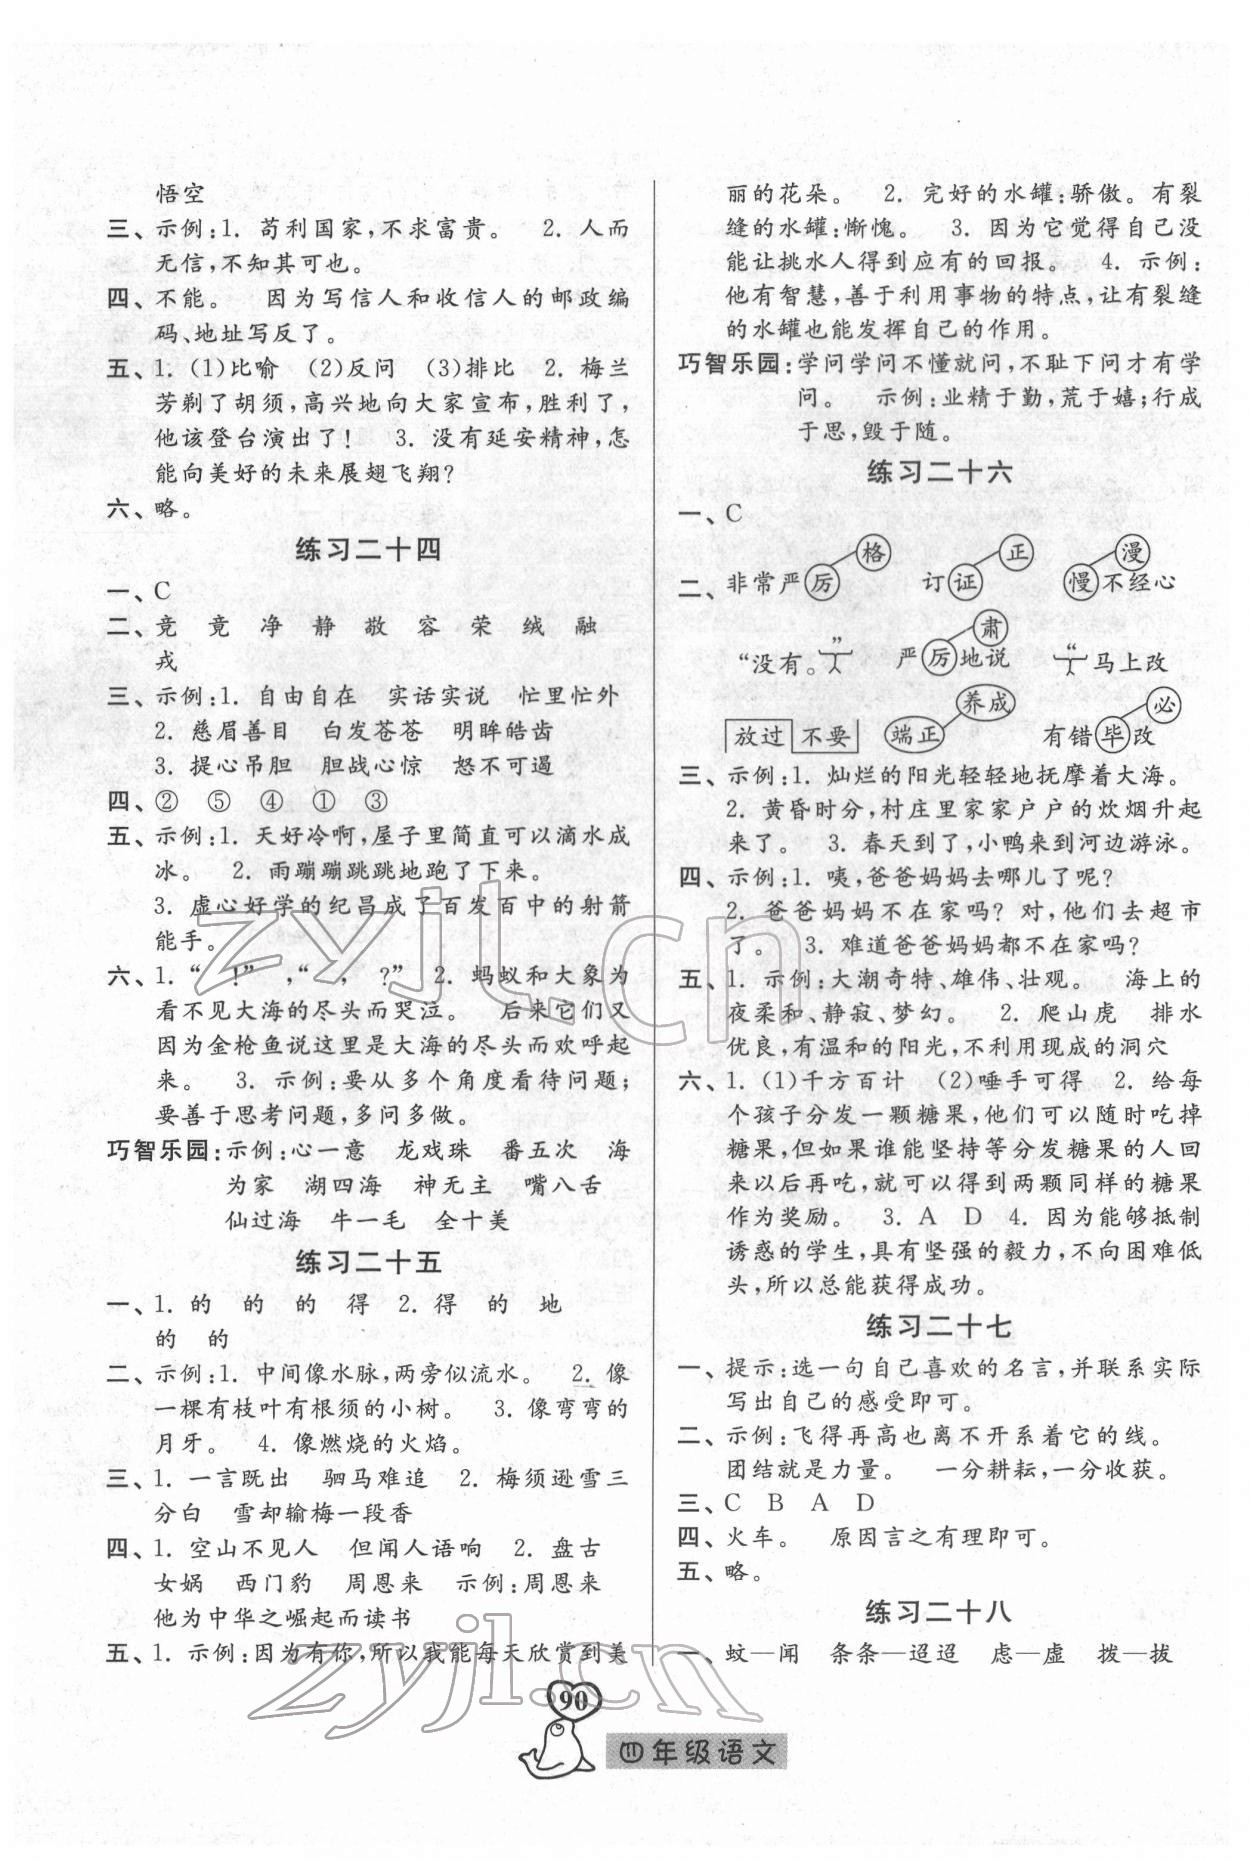 悟空
三、示例:1. 苟利国家,不求富贵。 2. 人而
无信,不知其可也。
四、不能。 因为写信人和收信人的邮政编
码、地址写反了。
五、1. (1)比喻 (2)反问 (3)排比 2. 梅兰
芳剃了胡须,高兴地向大家宣布,胜利了,
他该登台演出了! 3. 没有延安精神,怎
能向美好的未来展翅飞翔?
六、略。
练习二十四
一、C
二、竞 竟 净 静 敬 容 荣 绒 融
戎
三、示例:1. 自由自在 实话实说 忙里忙外
2. 慈眉善目 白发苍苍 明眸皓齿
3. 提心吊胆 胆战心惊 怒不可遏
四、② ⑤ ④ ① ③
五、示例:1. 天好冷啊,屋子里简直可以滴水成
冰。 2. 雨蹦蹦跳跳地跑了下来。
3. 虚心好学的纪昌成了百发百中的射箭
能手。
六、1.“ !”,“ , ?” 2. 蚂蚁和大象为
看不见大海的尽头而哭泣。 后来它们又
因为金枪鱼说这里是大海的尽头而欢呼起
来。 3. 示例:要从多个角度看待问题;
要善于思考问题,多问多做。
巧智乐园:示例:心一意 龙戏珠 番五次 海
为家 湖四海 神无主 嘴八舌
仙过海 牛一毛 全十美
练习二十五
一、1. 的 的 的 得 2. 得 的 地
的 的
二、示例:1. 中间像水脉,两旁似流水。 2. 像
一棵有枝叶有根须的小树。 3. 像弯弯的
月牙。 4. 像燃烧的火焰。
三、1. 一言既出 驷马难追 2. 梅须逊雪三
分白 雪却输梅一段香
四、1. 空山不见人 但闻人语响 2. 盘古
女娲 西门豹 周恩来 示例:周恩来
他为中华之崛起而读书
五、1. 示例:因为有你,所以我能每天欣赏到美
丽的花朵。 2. 完好的水罐:骄傲。有裂
缝的水罐:惭愧。 3. 因为它觉得自己没
能让挑水人得到应有的回报。 4. 示例:
他有智慧,善于利用事物的特点,让有裂缝
的水罐也能发挥自己的作用。
巧智乐园:学问学问不懂就问,不耻下问才有学
问。 示例:业精于勤,荒于嬉;行成
于思,毁于随。
练习二十六
一、C
格 正 漫
二、非常严厉 订证 慢不经心
” 肃 “
“没有。 严厉地说 马上改
养成 必
放过 不要 端正 有错毕改
三、示例:1. 灿烂的阳光轻轻地抚摩着大海。
2. 黄昏时分,村庄里家家户户的炊烟升起
来了。 3. 春天到了,小鸭来到河边游泳。
四、示例:1. 咦,爸爸妈妈去哪儿了呢?
2. 爸爸妈妈不在家吗?对,他们去超市
了。 3. 难道爸爸妈妈都不在家吗?
五、1. 示例:大潮奇特、雄伟、壮观。 海上的
夜柔和、静寂、梦幻。 2. 爬山虎 排水
优良,有温和的阳光,不利用现成的洞穴
六、1. (1)千方百计 (2)唾手可得 2. 给每
个孩子分发一颗糖果,他们可以随时吃掉
糖果,但如果谁能坚持等分发糖果的人回
来以后再吃,就可以得到两颗同样的糖果
作为奖励。 3. A D 4. 因为能够抵制
诱惑的学生,具有坚强的毅力,不向困难低
头,所以总能获得成功。
练习二十七
一、提示:选一句自己喜欢的名言,并联系实际
写出自己的感受即可。
二、示例:飞得再高也离不开系着它的线。
团结就是力量。 一分耕耘,一分收获。
三、C B A D
四、火车。 原因言之有理即可。
五、略。
练习二十八
一、蚊—闻 条条—迢迢 虑—虚 拨—拔
90
四年级语文
zyjl.cn
zyjl.cn